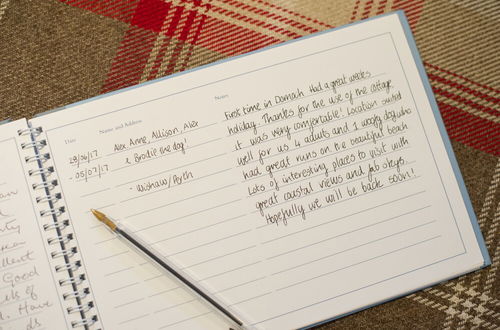 Date Name and Address Notes
28/06/17 Alex Anne, Allison, Alex
- 05/07/17 & Brodie the dog!
- Wishaw/Perth
First time in Dornoch. Had a great weeks
holiday. Thanks for the use of the cottage,
it was very comfortable! Location suited
well for us 4 adults and 1 woofy dog who
had great runs on the beautiful beach
Lots of interesting places to visit with
great coastal views and fab skys.
Hopefully we will be back soon!
Good
Have